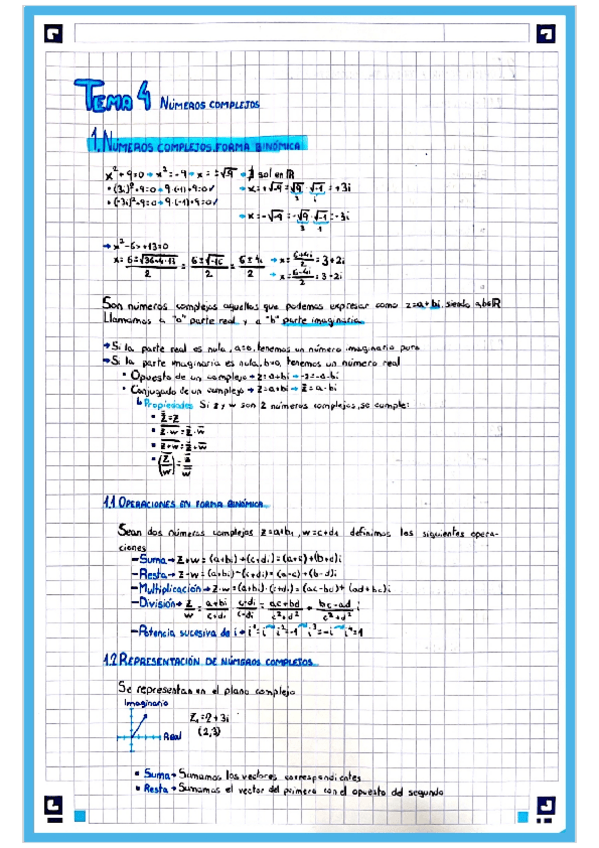 TEMA 4 NÚMEROS COMPLEJOS
1. NÚMEROS COMPLEJOS. FORMA BINÓMICA
x²+9=0 → x²=-9 → x=±√-9 → ∄ sol en ℝ
• (3i)²+9=0 → 9·(-1)+9=0 ✓ → x=+√-9=√9·√-1=+3i
3 i
• (-3i)²+9=0 → 9·(-1)+9=0 ✓
→ x=-√-9=-√9·√-1=-3i
3 i
→ x²-6x+13=0
x= 6±√36-4·13 / 2 = 6±√-16 / 2 = 6±4i / 2 → x= 6+4i / 2 = 3+2i
→ x= 6-4i / 2 = 3-2i
Son números complejos aquellos que podemos expresar como z=a+bi, siendo a,b∈ℝ
Llamamos a "a" parte real y a "b" parte imaginaria
→ Si la parte real es nula, a=0, tenemos un número imaginario puro
→ Si la parte imaginaria es nula, b=0, tenemos un número real
• Opuesto de un complejo → z=a+bi → -z=-a-bi
• Conjugado de un complejo → z=a+bi → z̅=a-bi
↳ Propiedades Si z y w son 2 números complejos, se cumple:
• z̿=z
• z·w̅=z̅·w̅
• z+w̅=z̅+w̅
• (z/w)̅=z̅/w̅
1.1 OPERACIONES EN FORMA BINÓMICA
Sean dos números complejos z=a+bi, w=c+di definimos las siguientes opera-
ciones
– Suma → z+w=(a+bi)+(c+di)=(a+c)+(b+d)i
– Resta → z-w=(a+bi)-(c+di)=(a-c)+(b-d)i
– Multiplicación → z·w=(a+bi)·(c+di)=(ac-bd)+(ad+bc)i
– División → z/w = a+bi / c+di · c-di / c-di = ac+bd / c²+d² + bc-ad / c²+d² i
– Potencia sucesiva de i → i¹=i i²=-1 i³=-i i⁴=1
1.2 REPRESENTACIÓN DE NÚMEROS COMPLEJOS
Se representan en el plano complejo
Imaginario
Z₁=2+3i
(2,3)
Real
• Suma → Sumamos los vectores correspondientes
• Resta → Sumamos el vector del primero con el opuesto del segundo